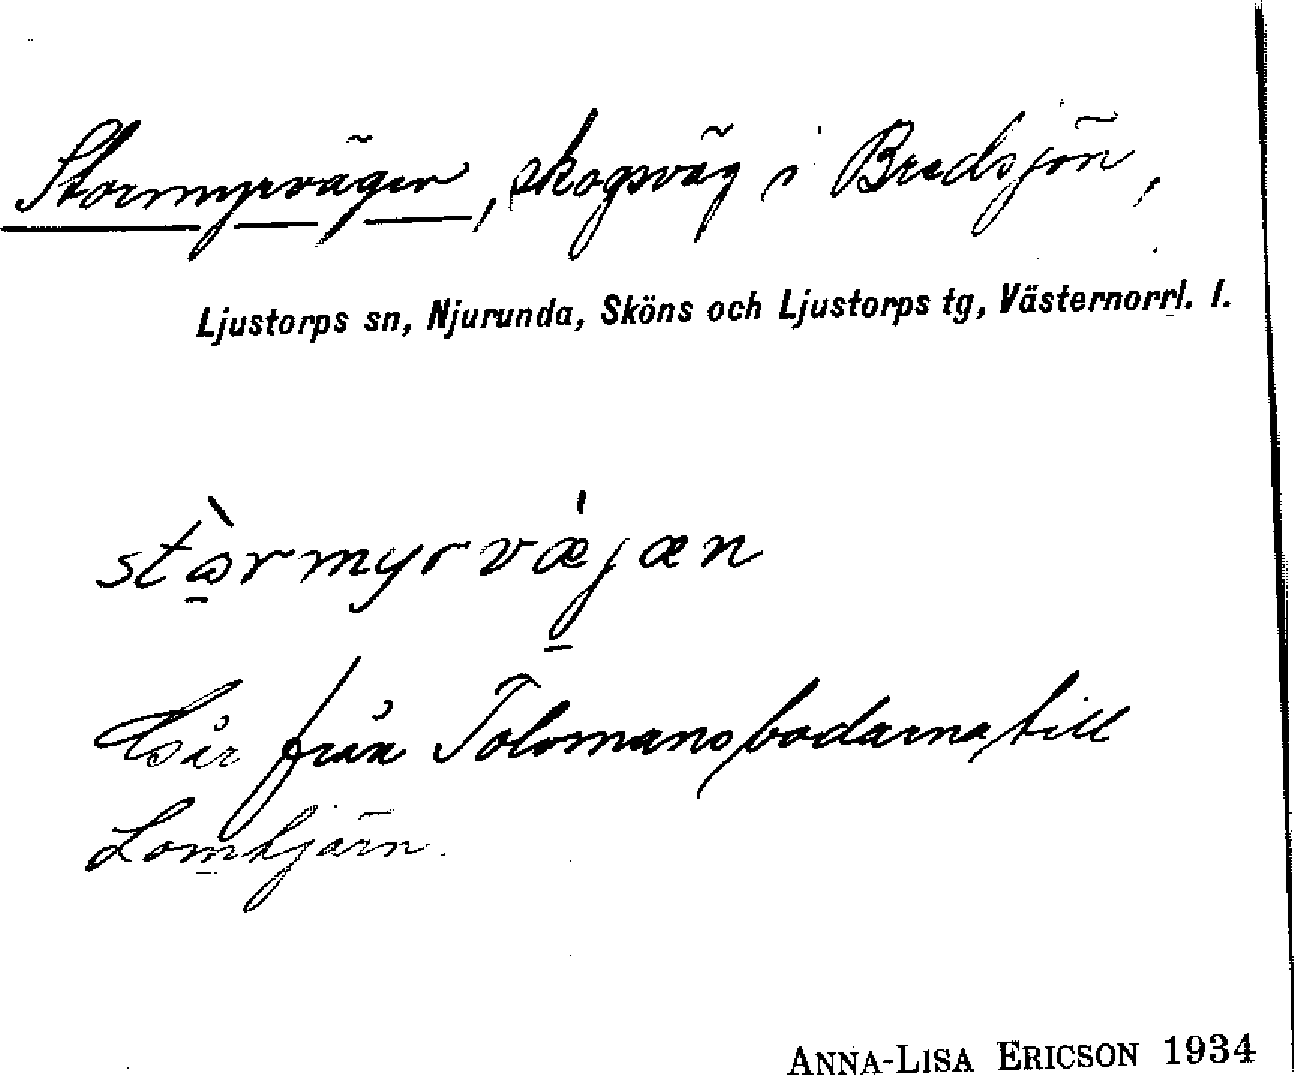 Stormyrvägen, skogsväg i Bredsjön,
Ljustorps sn, Njurunda, Sköns och Ljustorps tg, Västernorrl. l.
stòrmyrvæ̀jæn
Går från Tolvmansbodarna till
Lomtjärn.
ANNA-LISA ERICSON 1934